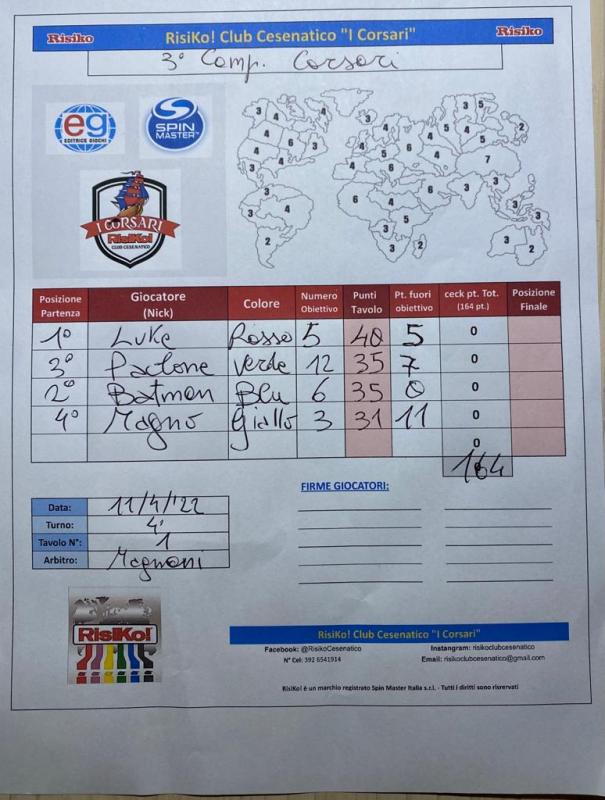 Risiko RisiKo! Club Cesenatico "I Corsari" Risiko
3° Comp. Corsari
eg
EDITRICE GIOCHI
SPIN MASTER™
I CORSARI
RisiKo!
CLUB CESENATICO
Posizione Partenza Giocatore (Nick) Colore Numero Obiettivo Punti Tavolo Pt. fuori obiettivo ceck pt. Tot. (164 pt.) Posizione Finale
1° Luke Rosso 5 40 5 0
3° Paclone Verde 12 35 7 0
2° Batman Blu 6 35 0 0
4° Magno Giallo 3 31 11 0
0
164
FIRME GIOCATORI:
Data: 11/4/'22
Turno: 4°
Tavolo N°: 1
Arbitro: Magnani
RisiKo!
RisiKo! Club Cesenatico "I Corsari"
Facebook: @RisikoCesenatico Instangram: risikoclubcesenatico
N° Cel: 392 6541914 Email: risikoclubcesenatico@gmail.com
RisiKo! è un marchio registrato Spin Master Italia s.r.l. - Tutti i diritti sono risrervati